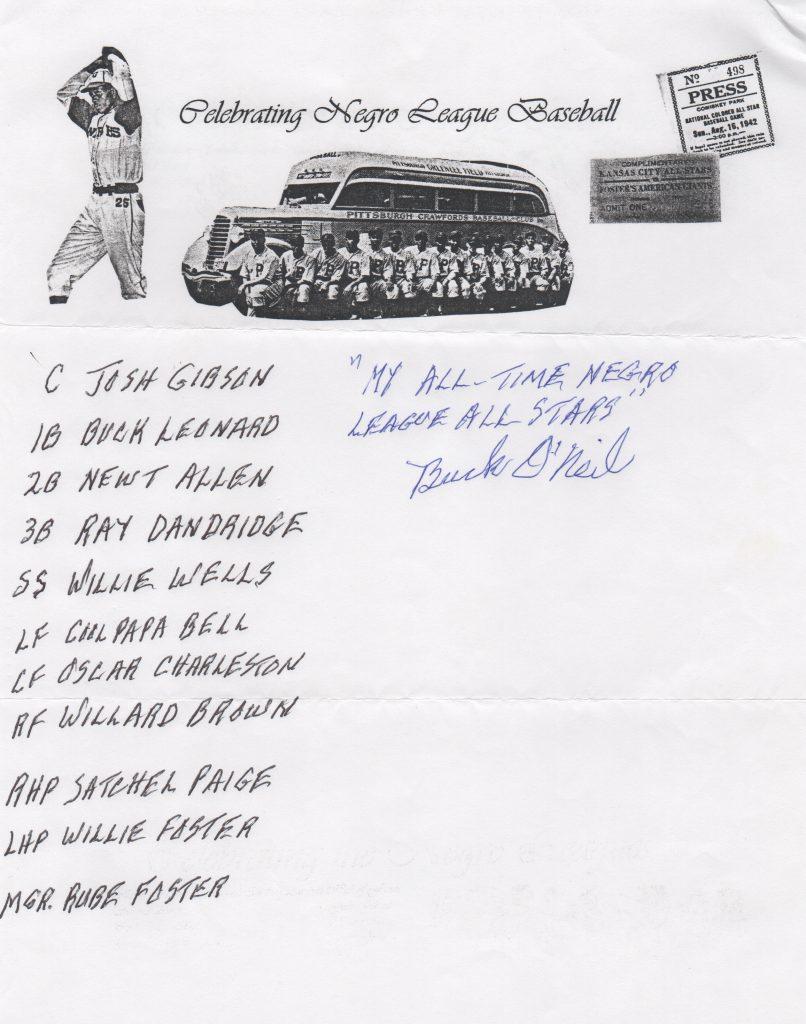 Celebrating Negro League Baseball
Nº 498
PRESS
COMISKEY PARK
NATIONAL COLORED ALL STAR
BASEBALL GAME
Sun., Aug. 16, 1942
COMPLIMENTARY
KANSAS CITY ALL STARS
FOSTER'S AMERICAN GIANTS
ADMIT ONE
PITTSBURGH CRAWFORDS BASEBALL CLUB
25
C JOSH GIBSON
1B BUCK LEONARD
2B NEWT ALLEN
3B RAY DANDRIDGE
SS WILLIE WELLS
LF COOL PAPA BELL
CF OSCAR CHARLESTON
RF WILLARD BROWN
RHP SATCHEL PAIGE
LHP WILLIE FOSTER
MGR. RUBE FOSTER
"MY ALL-TIME NEGRO
LEAGUE ALL STARS"
Buck O'Neil